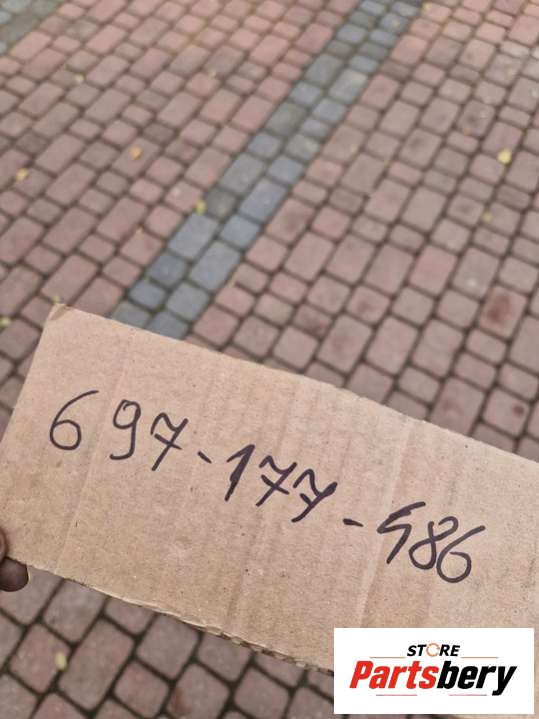 697-177-486
STORE
Partsbery